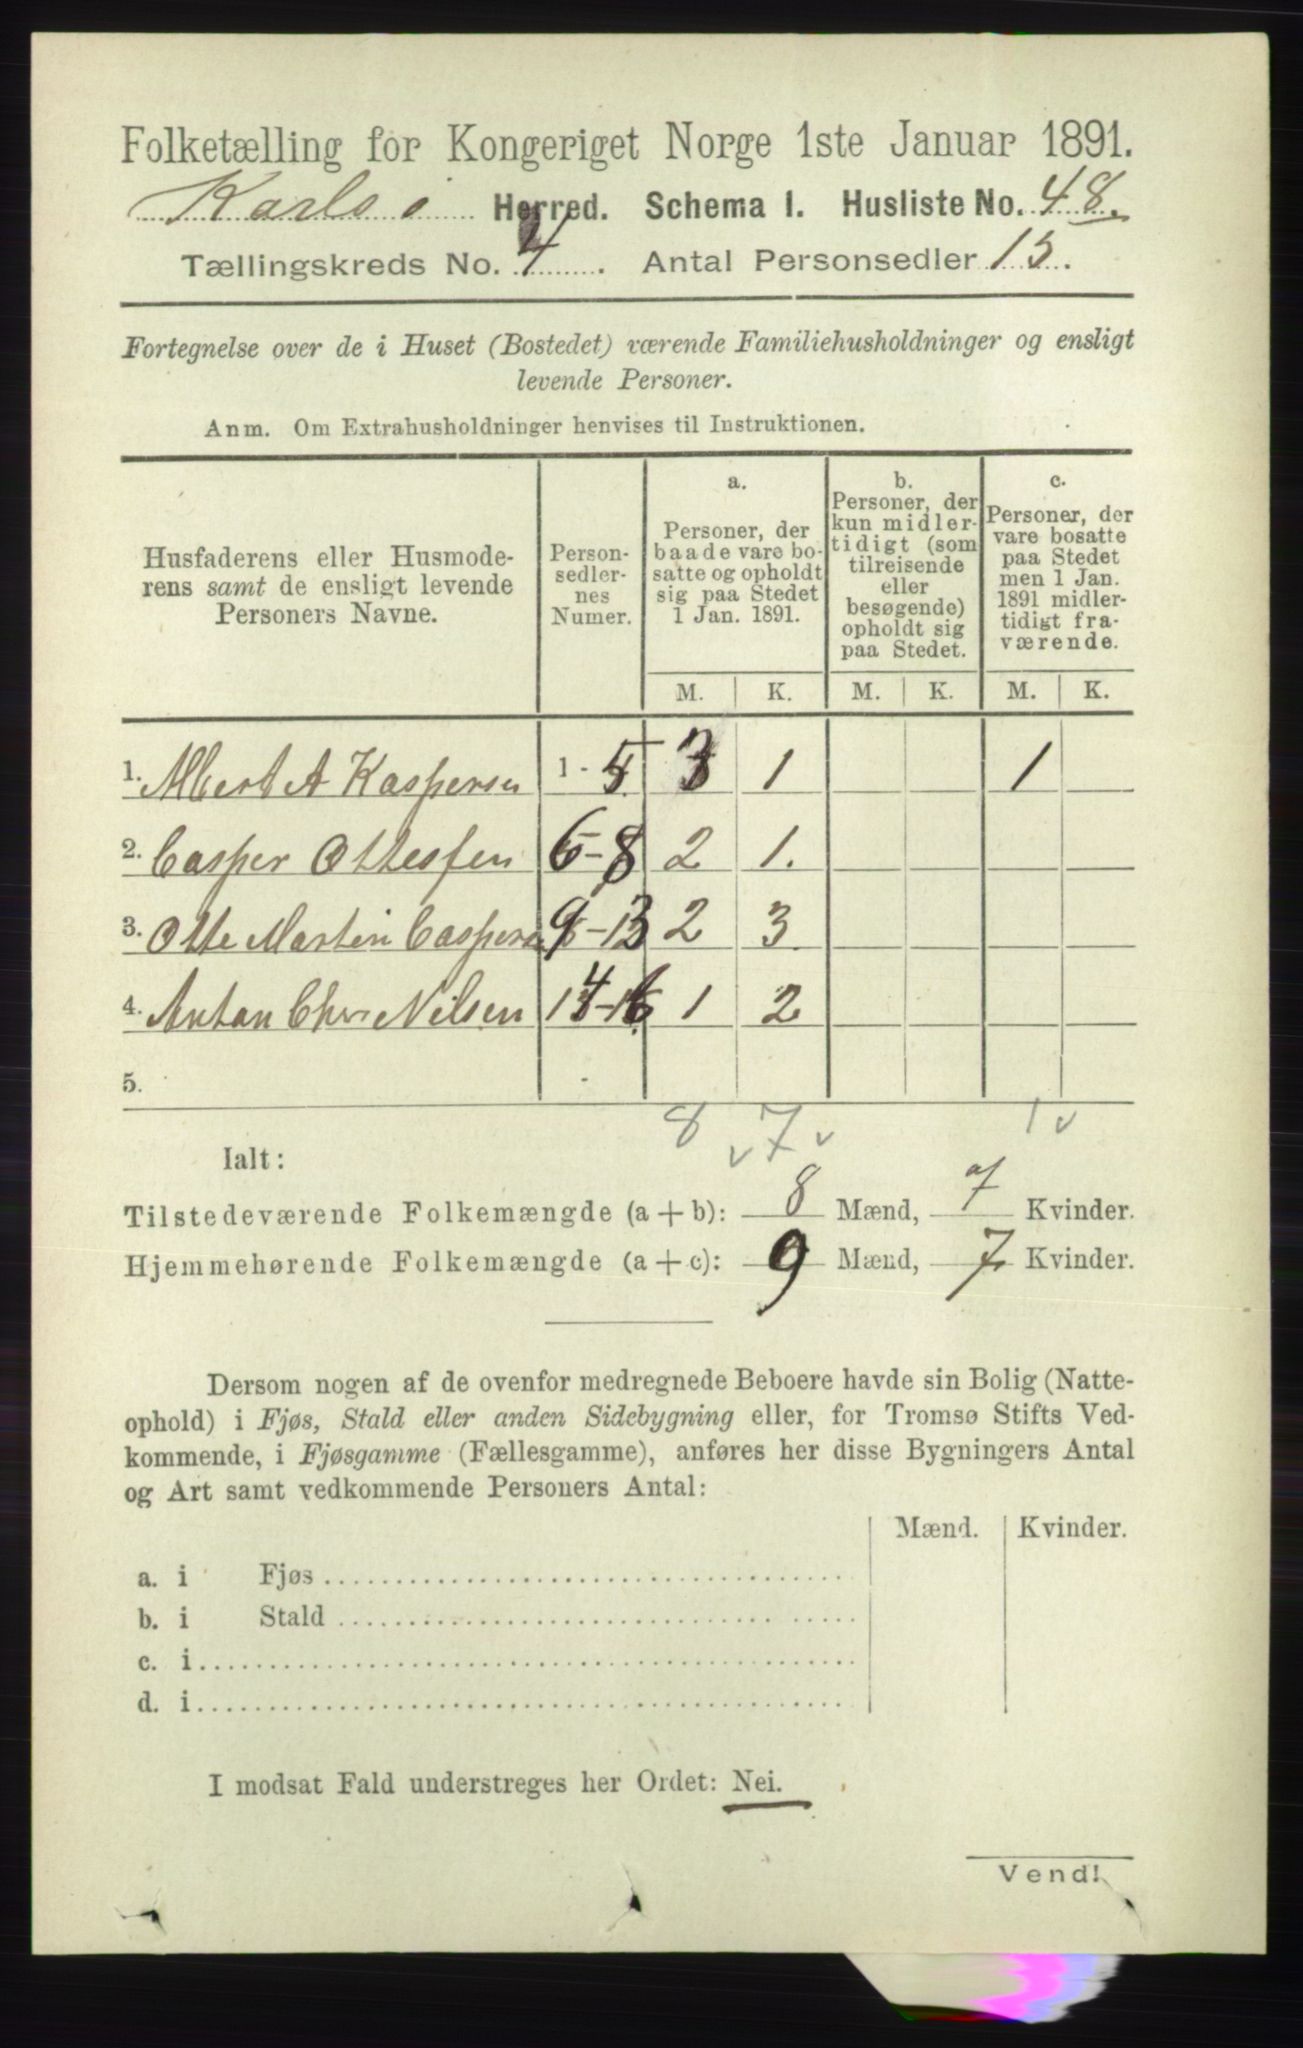 Folketælling for Kongeriget Norge 1ste Januar 1891.
Karlsö Herred. Schema I. Husliste No. 48.
Tællingskreds No. 4. Antal Personsedler 15.
Fortegnelse over de i Huset (Bostedet) værende Familiehusholdninger og ensligt
levende Personer.
Anm. Om Extrahusholdninger henvises til Instruktionen.
Husfaderens eller Husmode-
rens samt de ensligt levende
Personers Navne.
Person-
sedler-
nes
Numer.
a.
Personer, der
baade vare bo-
satte og opholdt
sig paa Stedet
1 Jan. 1891.
b.
Personer, der
kun midler-
tidigt (som
tilreisende
eller
besøgende)
opholdt sig
paa Stedet.
c.
Personer, der
vare bosatte
paa Stedet
men 1 Jan.
1891 midler-
tidigt fra-
værende.
M. K. M. K. M. K.
1. Albert A Kaspersen 1 - 5 3 1 1
2. Casper Ottesen 6-8 2 1.
3. Otte Martin Caspers 9-13 2 3
4. Anton Chr Nilsen 14-16 1 2
5.
8 v 7 v 1 v
Ialt:
Tilstedeværende Folkemængde (a + b): 8 Mænd, 7 Kvinder.
Hjemmehørende Folkemængde (a + c): 9 Mænd, 7 Kvinder.
Dersom nogen af de ovenfor medregnede Beboere havde sin Bolig (Natte-
ophold) i Fjøs, Stald eller anden Sidebygning eller, for Tromsø Stifts Ved-
kommende, i Fjøsgamme (Fællesgamme), anføres her disse Bygningers Antal
og Art samt vedkommende Personers Antal:
Mænd. Kvinder.
a. i Fjøs
b. i Stald
c. i
d. i
I modsat Fald understreges her Ordet: Nei.
Vend!